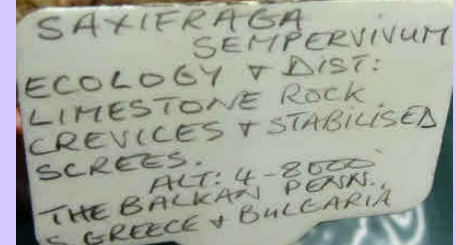 SAXIFRAGA
SEMPERVIVUM
ECOLOGY & DIST:
LIMESTONE ROCK
CREVICES & STABILISED
SCREES.
ALT: 4-8500
THE BALKAN PENN.,
S GREECE & BULGARIA